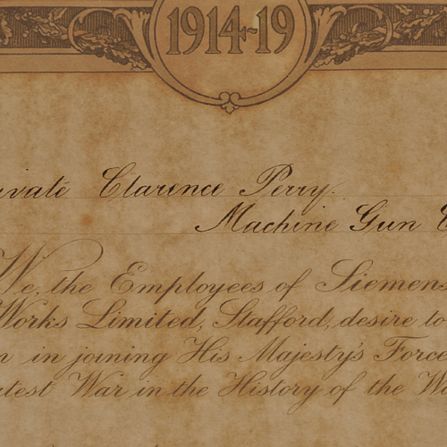 1914-19
ivate Clarence Perry.
Machine Gun C
We, the Employees of Siemens
Works Limited, Stafford, desire to
n in joining His Majesty's Force
atest War in the History of the Wo